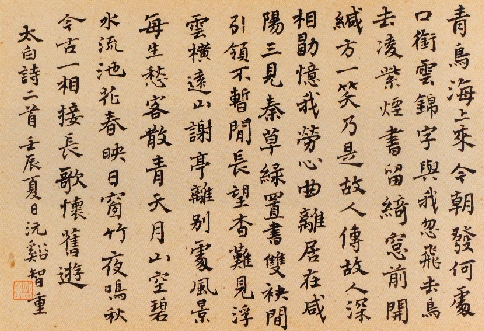 青鳥海上來今朝發何處
口銜雲錦字與我忽飛去鳥
去凌紫煙書留綺窓前開
緘方一笑乃是故人傳故人深
相勖憶我勞心曲離居在咸
陽三見秦草綠置書雙袂間
引領不暫閒長望杳難見浮
雲橫遠山謝亭離別處風景
每生愁客散青天月山空碧
水流池花春映日窗竹夜鳴秋
今古一相接長歌懷舊遊
太白詩二首壬辰夏日沅谿智重